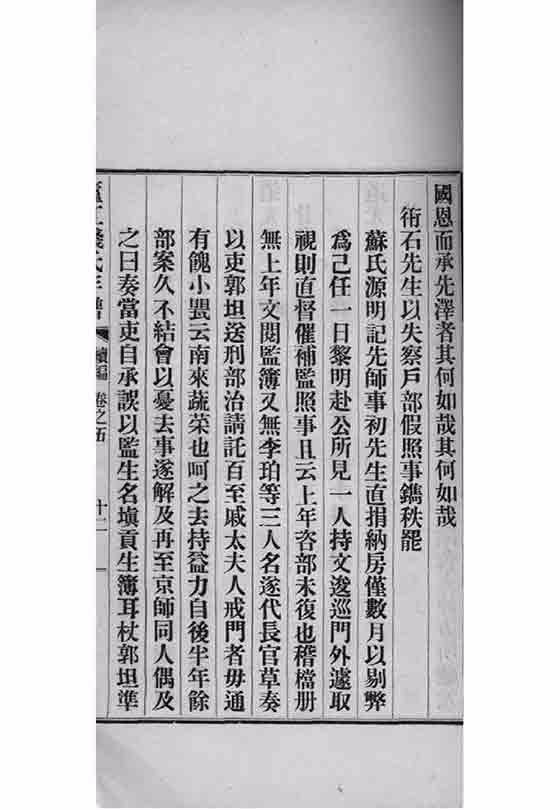 國恩而承先澤者其何如哉其何如哉
衎石先生以失察戶部假照事鐫秩罷
蘇氏源明記先師事初先生直捐納房僅數月以剔弊
爲己任一日黎明赴公所見一人持文逡巡門外遽取
視則直督催補監照事且云上年咨部未復也稽檔册
無上年文閱監簿又無李珀等三人名遂代長官草奏
以吏郭坦送刑部治請託百至戚太夫人戒門者毋通
有餽小甖云南來蔬菜也呵之去持益力自後半年餘
部案久不結會以憂去事遂解及再至京師同人偶及
之曰奏當吏自承誤以監生名塡貢生簿耳杖郭坦準
廬江錢氏年譜 續編 卷之五 十二